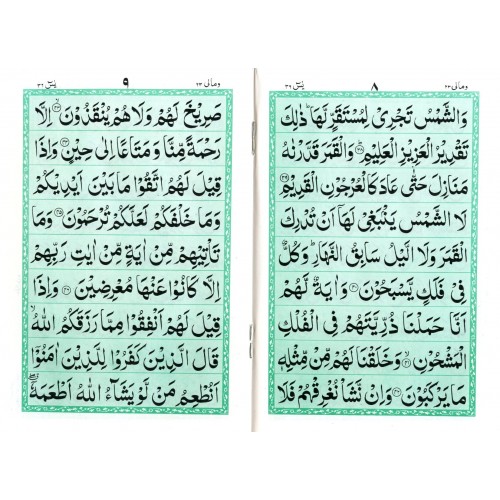 ومالی ٢٣
٨
یٰسٓ ٣٦
وَالشَّمْسُ تَجْرِىْ لِمُسْتَقَرٍّ لَّهَا ؕ ذٰلِكَ
تَقْدِيْرُ الْعَزِيْزِ الْعَلِيْمِ ﴿٣٨﴾ وَالْقَمَرَ قَدَّرْنٰهُ
مَنَازِلَ حَتّٰى عَادَ كَالْعُرْجُوْنِ الْقَدِيْمِ ﴿٣٩﴾
لَا الشَّمْسُ يَنْۢبَغِىْ لَهَاۤ اَنْ تُدْرِكَ
الْقَمَرَ وَلَا الَّيْلُ سَابِقُ النَّهَارِ ؕ وَكُلٌّ
فِىْ فَلَكٍ يَّسْبَحُوْنَ ﴿٤٠﴾ وَاٰيَةٌ لَّهُمْ
اَنَّا حَمَلْنَا ذُرِّيَّتَهُمْ فِى الْفُلْكِ
الْمَشْحُوْنِ ﴿٤١﴾ وَخَلَقْنَا لَهُمْ مِّنْ مِّثْلِهٖ
مَا يَرْكَبُوْنَ ﴿٤٢﴾ وَاِنْ نَّشَاْ نُغْرِقْهُمْ فَلَا
ومالی ٢٣
٩
یٰسٓ ٣٦
صَرِيْخَ لَهُمْ وَلَا هُمْ يُنْقَذُوْنَ ﴿٤٣﴾ اِلَّا
رَحْمَةً مِّنَّا وَمَتَاعًا اِلٰى حِيْنٍ ﴿٤٤﴾ وَاِذَا
قِيْلَ لَهُمُ اتَّقُوْا مَا بَيْنَ اَيْدِيْكُمْ
وَمَا خَلْفَكُمْ لَعَلَّكُمْ تُرْحَمُوْنَ ﴿٤٥﴾ وَمَا
تَاْتِيْهِمْ مِّنْ اٰيَةٍ مِّنْ اٰيٰتِ رَبِّهِمْ
اِلَّا كَانُوْا عَنْهَا مُعْرِضِيْنَ ﴿٤٦﴾ وَاِذَا
قِيْلَ لَهُمْ اَنْفِقُوْا مِمَّا رَزَقَكُمُ اللّٰهُ ۙ
قَالَ الَّذِيْنَ كَفَرُوْا لِلَّذِيْنَ اٰمَنُوْۤا
اَنُطْعِمُ مَنْ لَّوْ يَشَآءُ اللّٰهُ اَطْعَمَهٗۤ